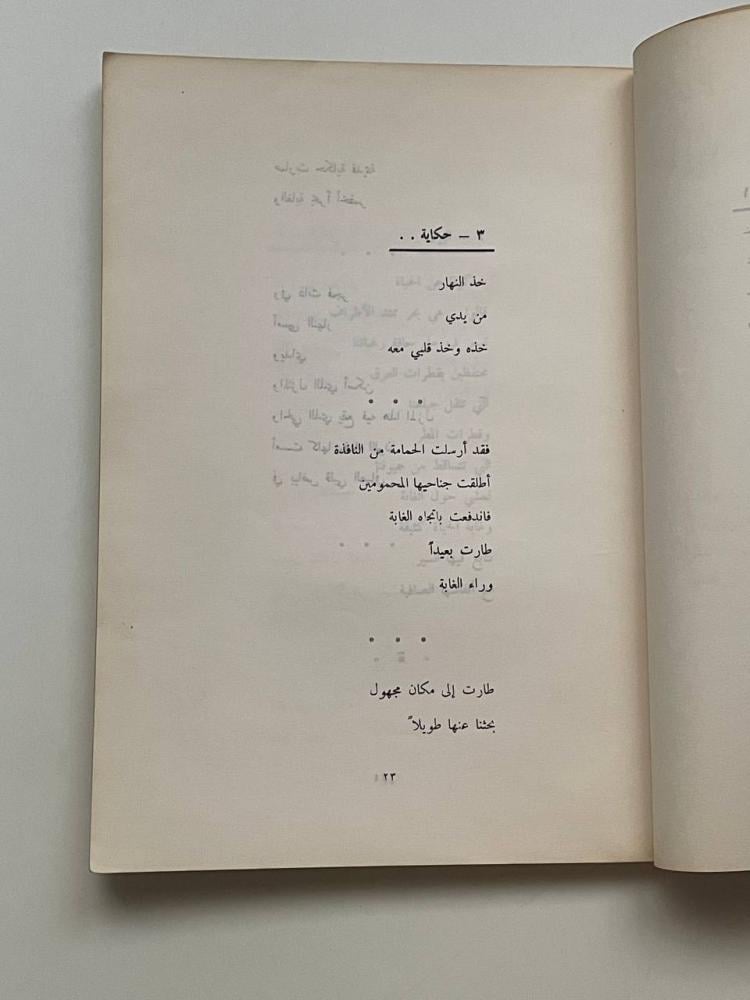 ٣ – حكاية . .
خذ النهار
من يدي
خذه وخذ قلبي معه
• • •
فقد أرسلت الحمامة من النافذة
أطلقت جناحيها المحمومين
فاندفعت باتجاه الغابة
طارت بعيداً
وراء الغابة
• • •
طارت إلى مكان مجهول
بحثنا عنها طويلاً
٢٣